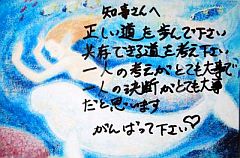 知事さんへ
正しい道を歩んで下さい
共存できる道を考え下さい
一人の考えがとても大事で
一人の決断がとても大事
だと思います
がんばって下さい♡